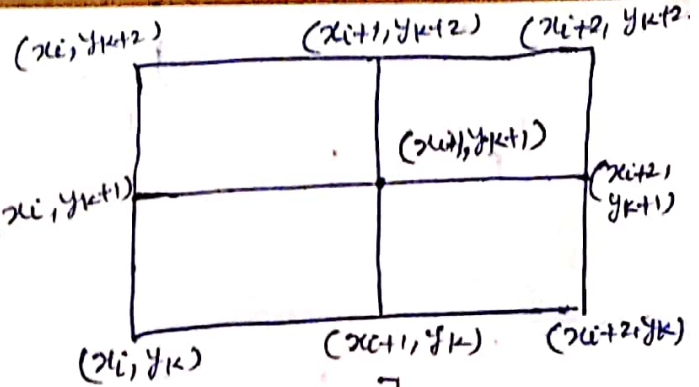 (xi, yk+2) (xi+1, yk+2) (xi+2, yk+2
(xi+1, yk+1)
xi, yk+1) (xi+2,
yk+1)
(xi, yk) (xi+1, yk) (xi+2, yk)